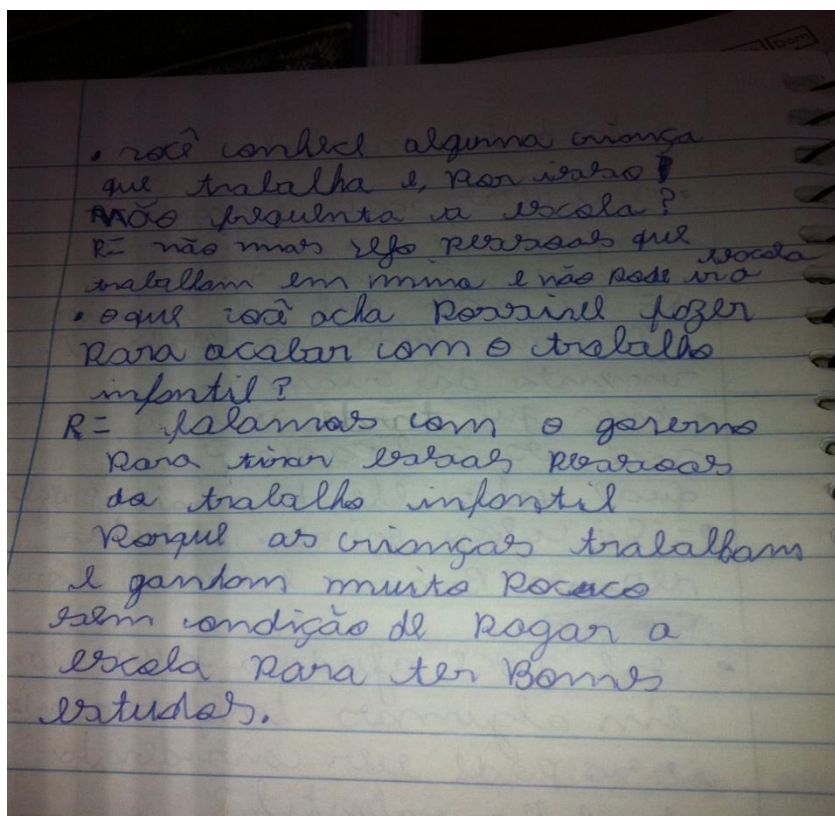 • você conhece alguma criança
que trabalha e, por isso
não frequenta a escola?
R= não mas vejo pessoas que
trabalham em mina e não pode ir a escola
• o que você acha possivel fazer
para acabar com o trabalho
infantil?
R= falamos com o governo
para tirar essas pessoas
do trabalho infantil
porque as crianças trabalham
e ganham muito pocuco
sem condição de pagar a
escola para ter Bomes
estudos.